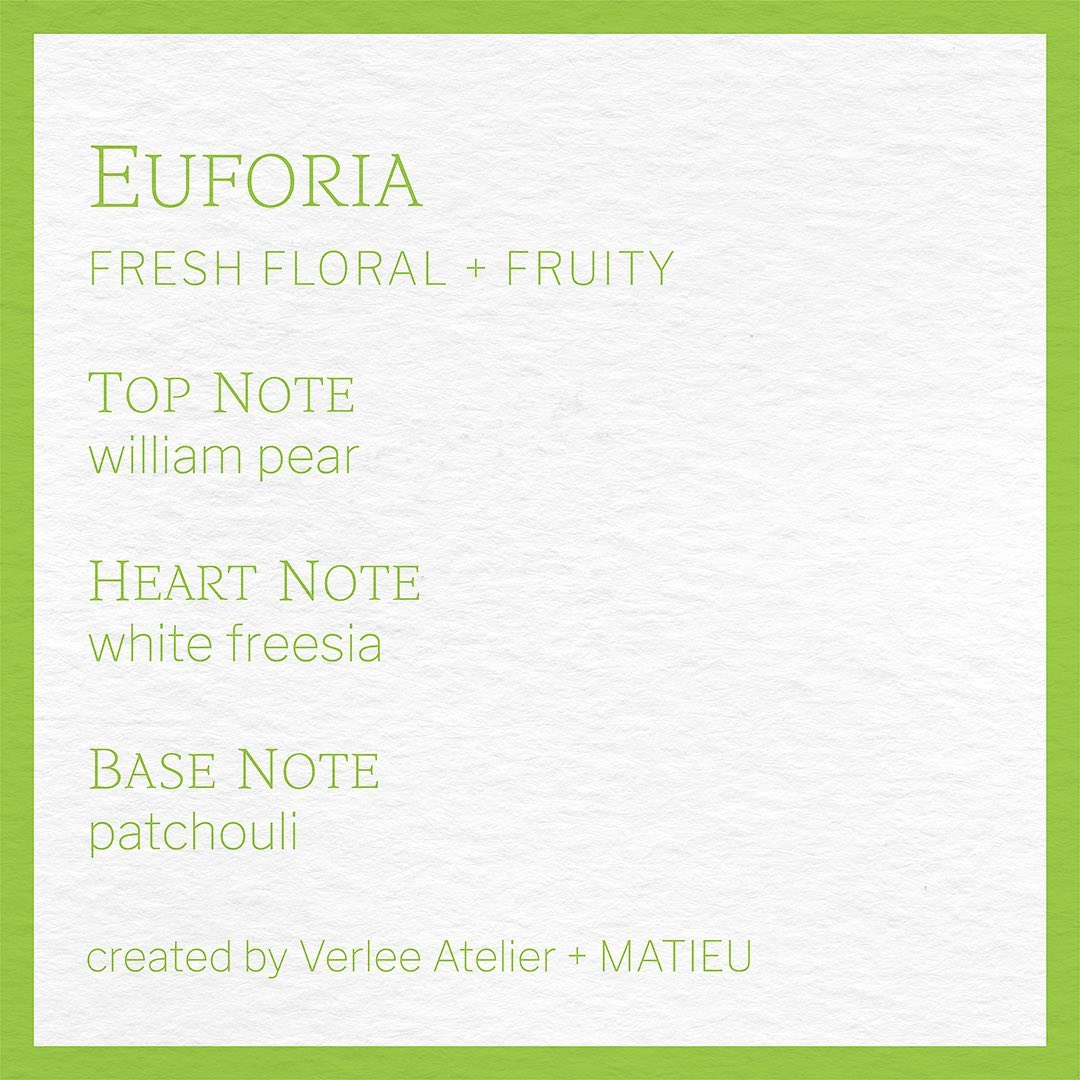 EUFORIA
FRESH FLORAL + FRUITY
TOP NOTE
william pear
HEART NOTE
white freesia
BASE NOTE
patchouli
created by Verlee Atelier + MATIEU